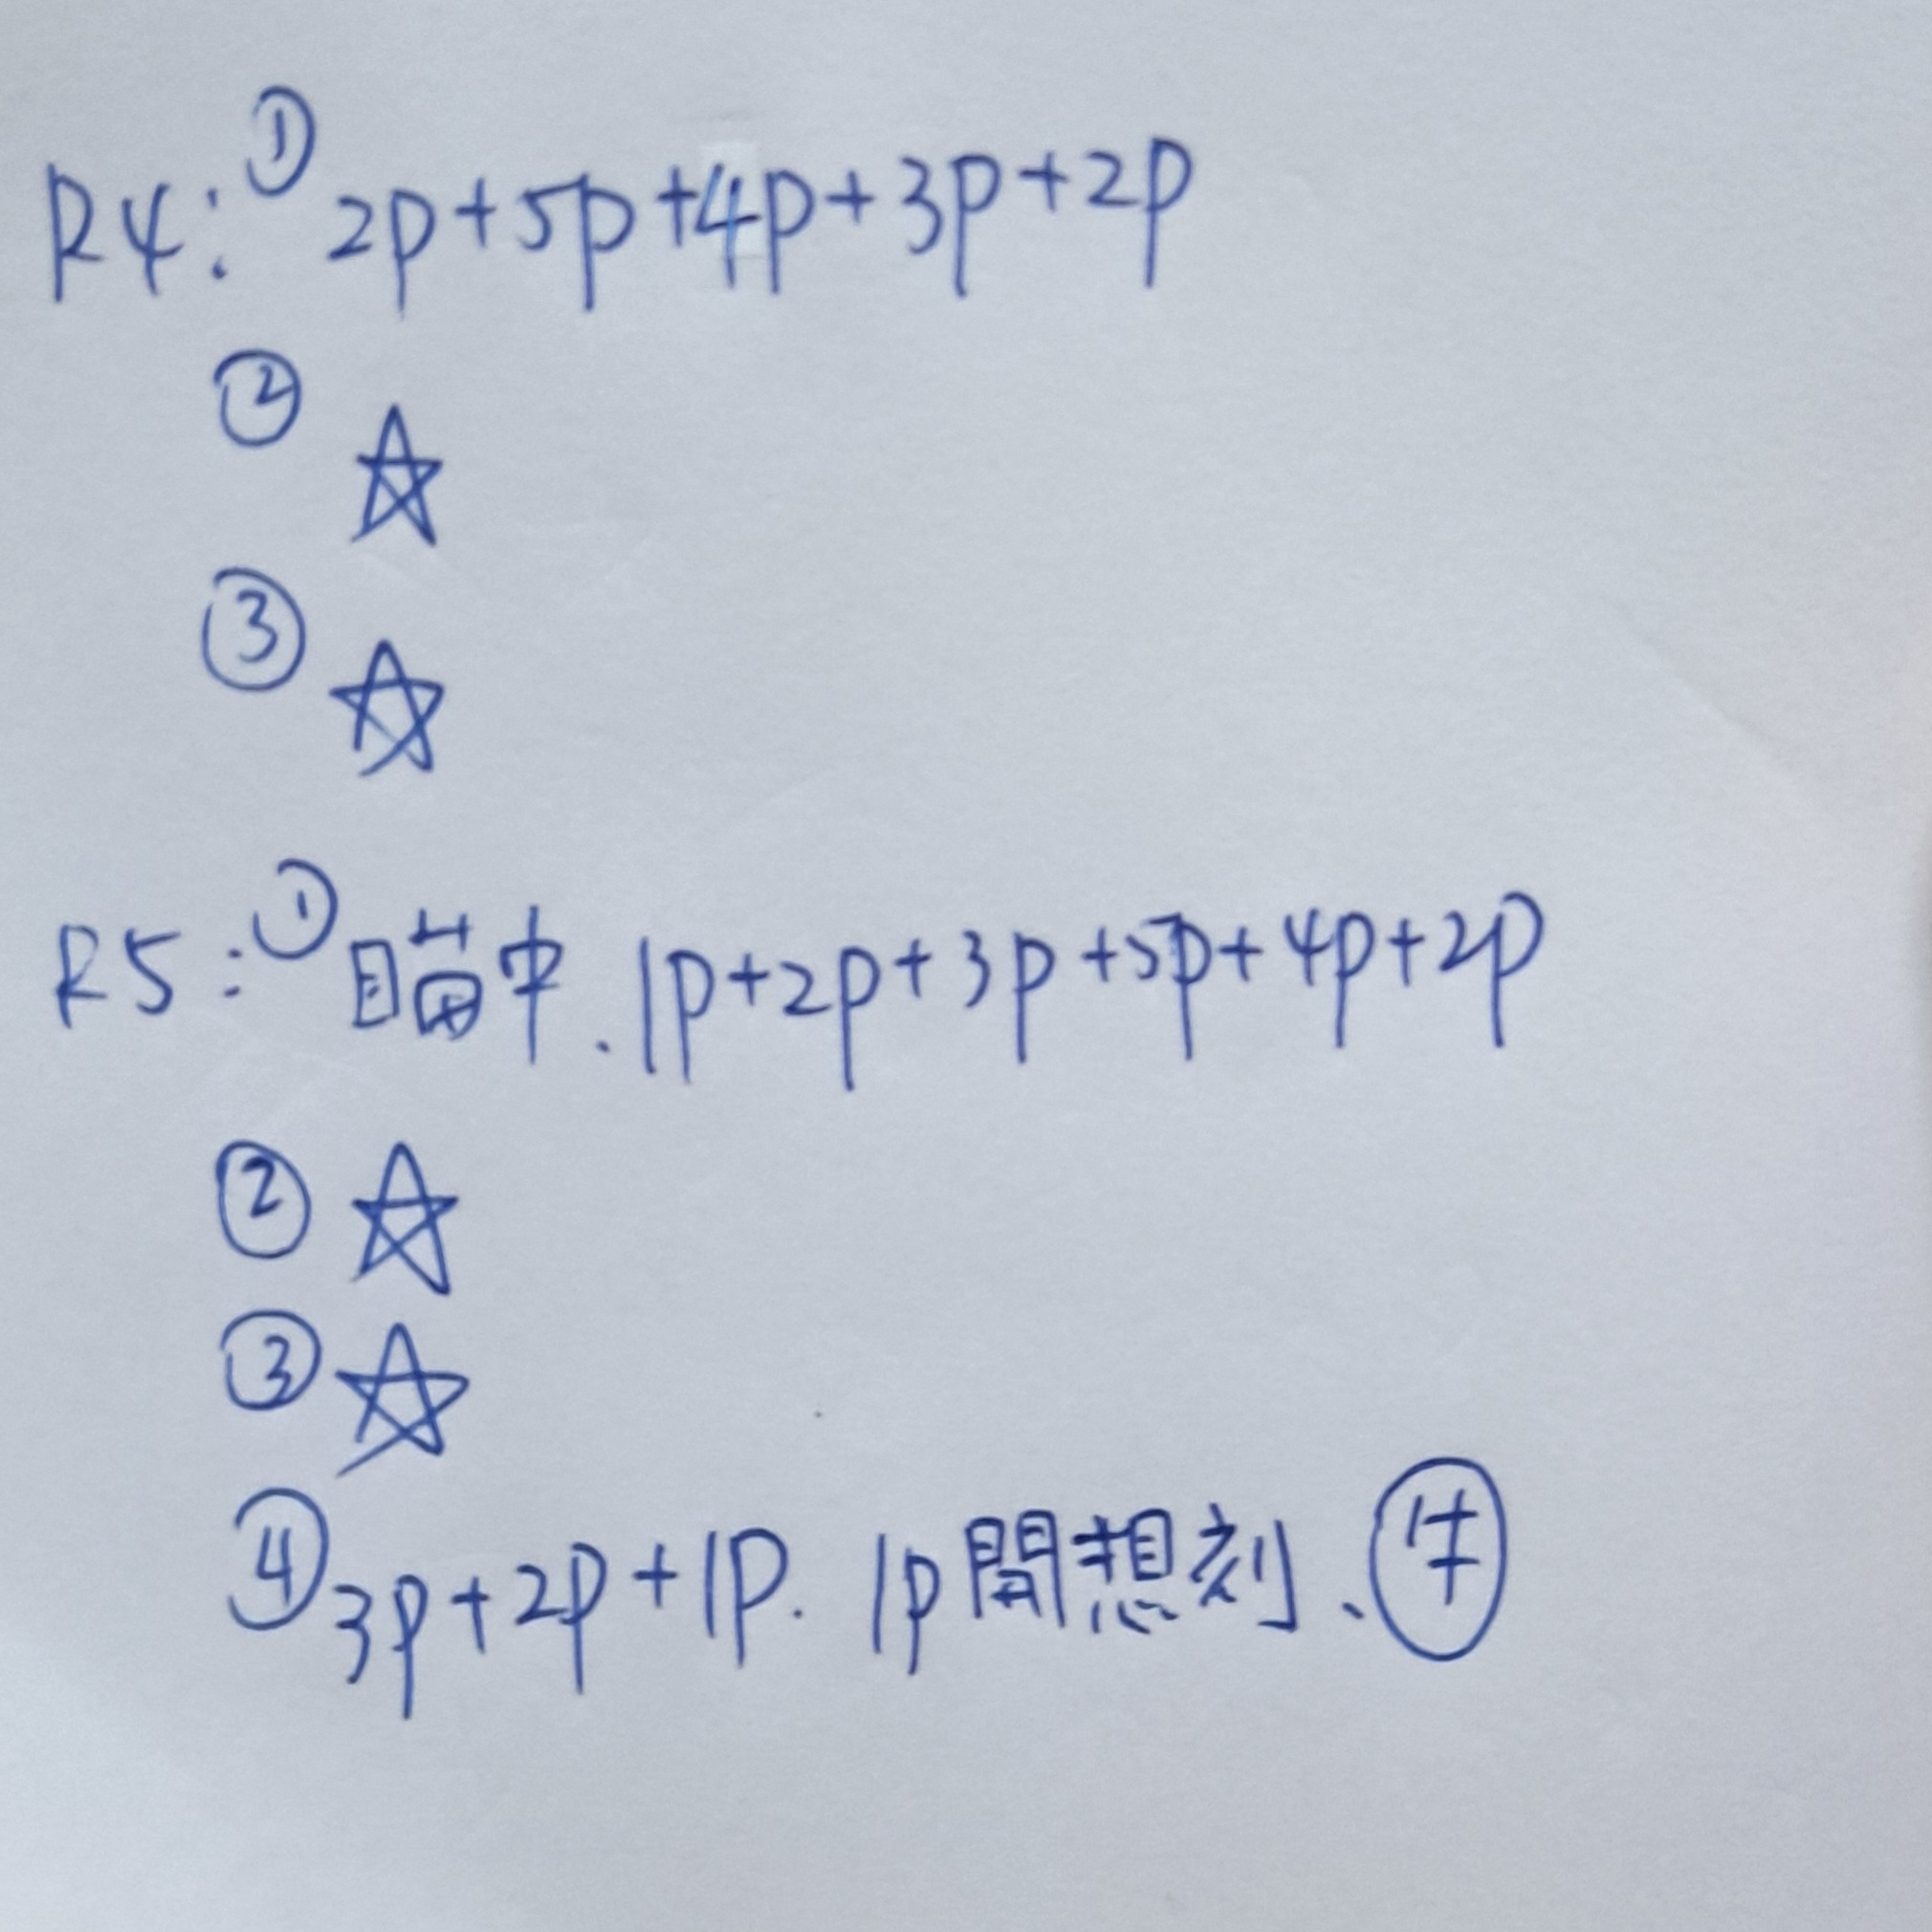 R4:① 2p+5p+4p+3p+2p
② ☆
③ ☆
R5:① 瞄中.1p+2p+3p+5p+4p+2p
② ☆
③ ☆
④ 3p+2p+1p. 1p開想刻、